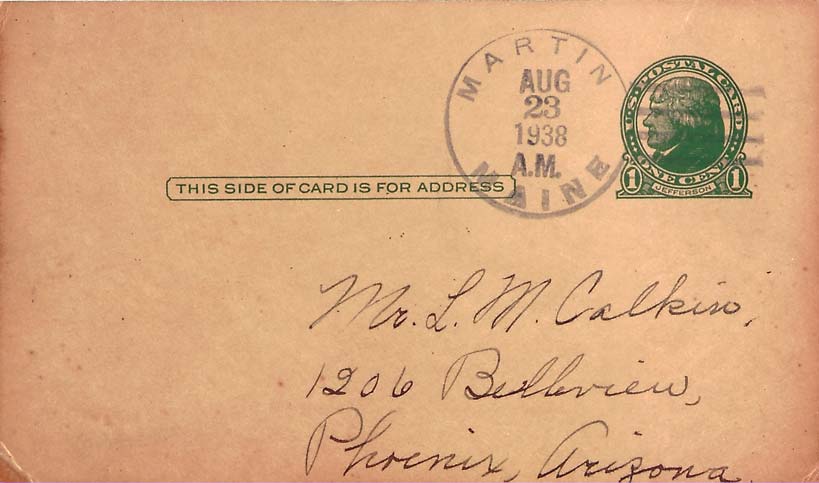 MARTIN
AUG
23
1938
A.M.
MAINE
U.S. POSTAL CARD
ONE CENT
1 JEFFERSON 1
THIS SIDE OF CARD IS FOR ADDRESS
Mr. L. M. Calkins,
1206 Bellview,
Phoenix, Arizona.